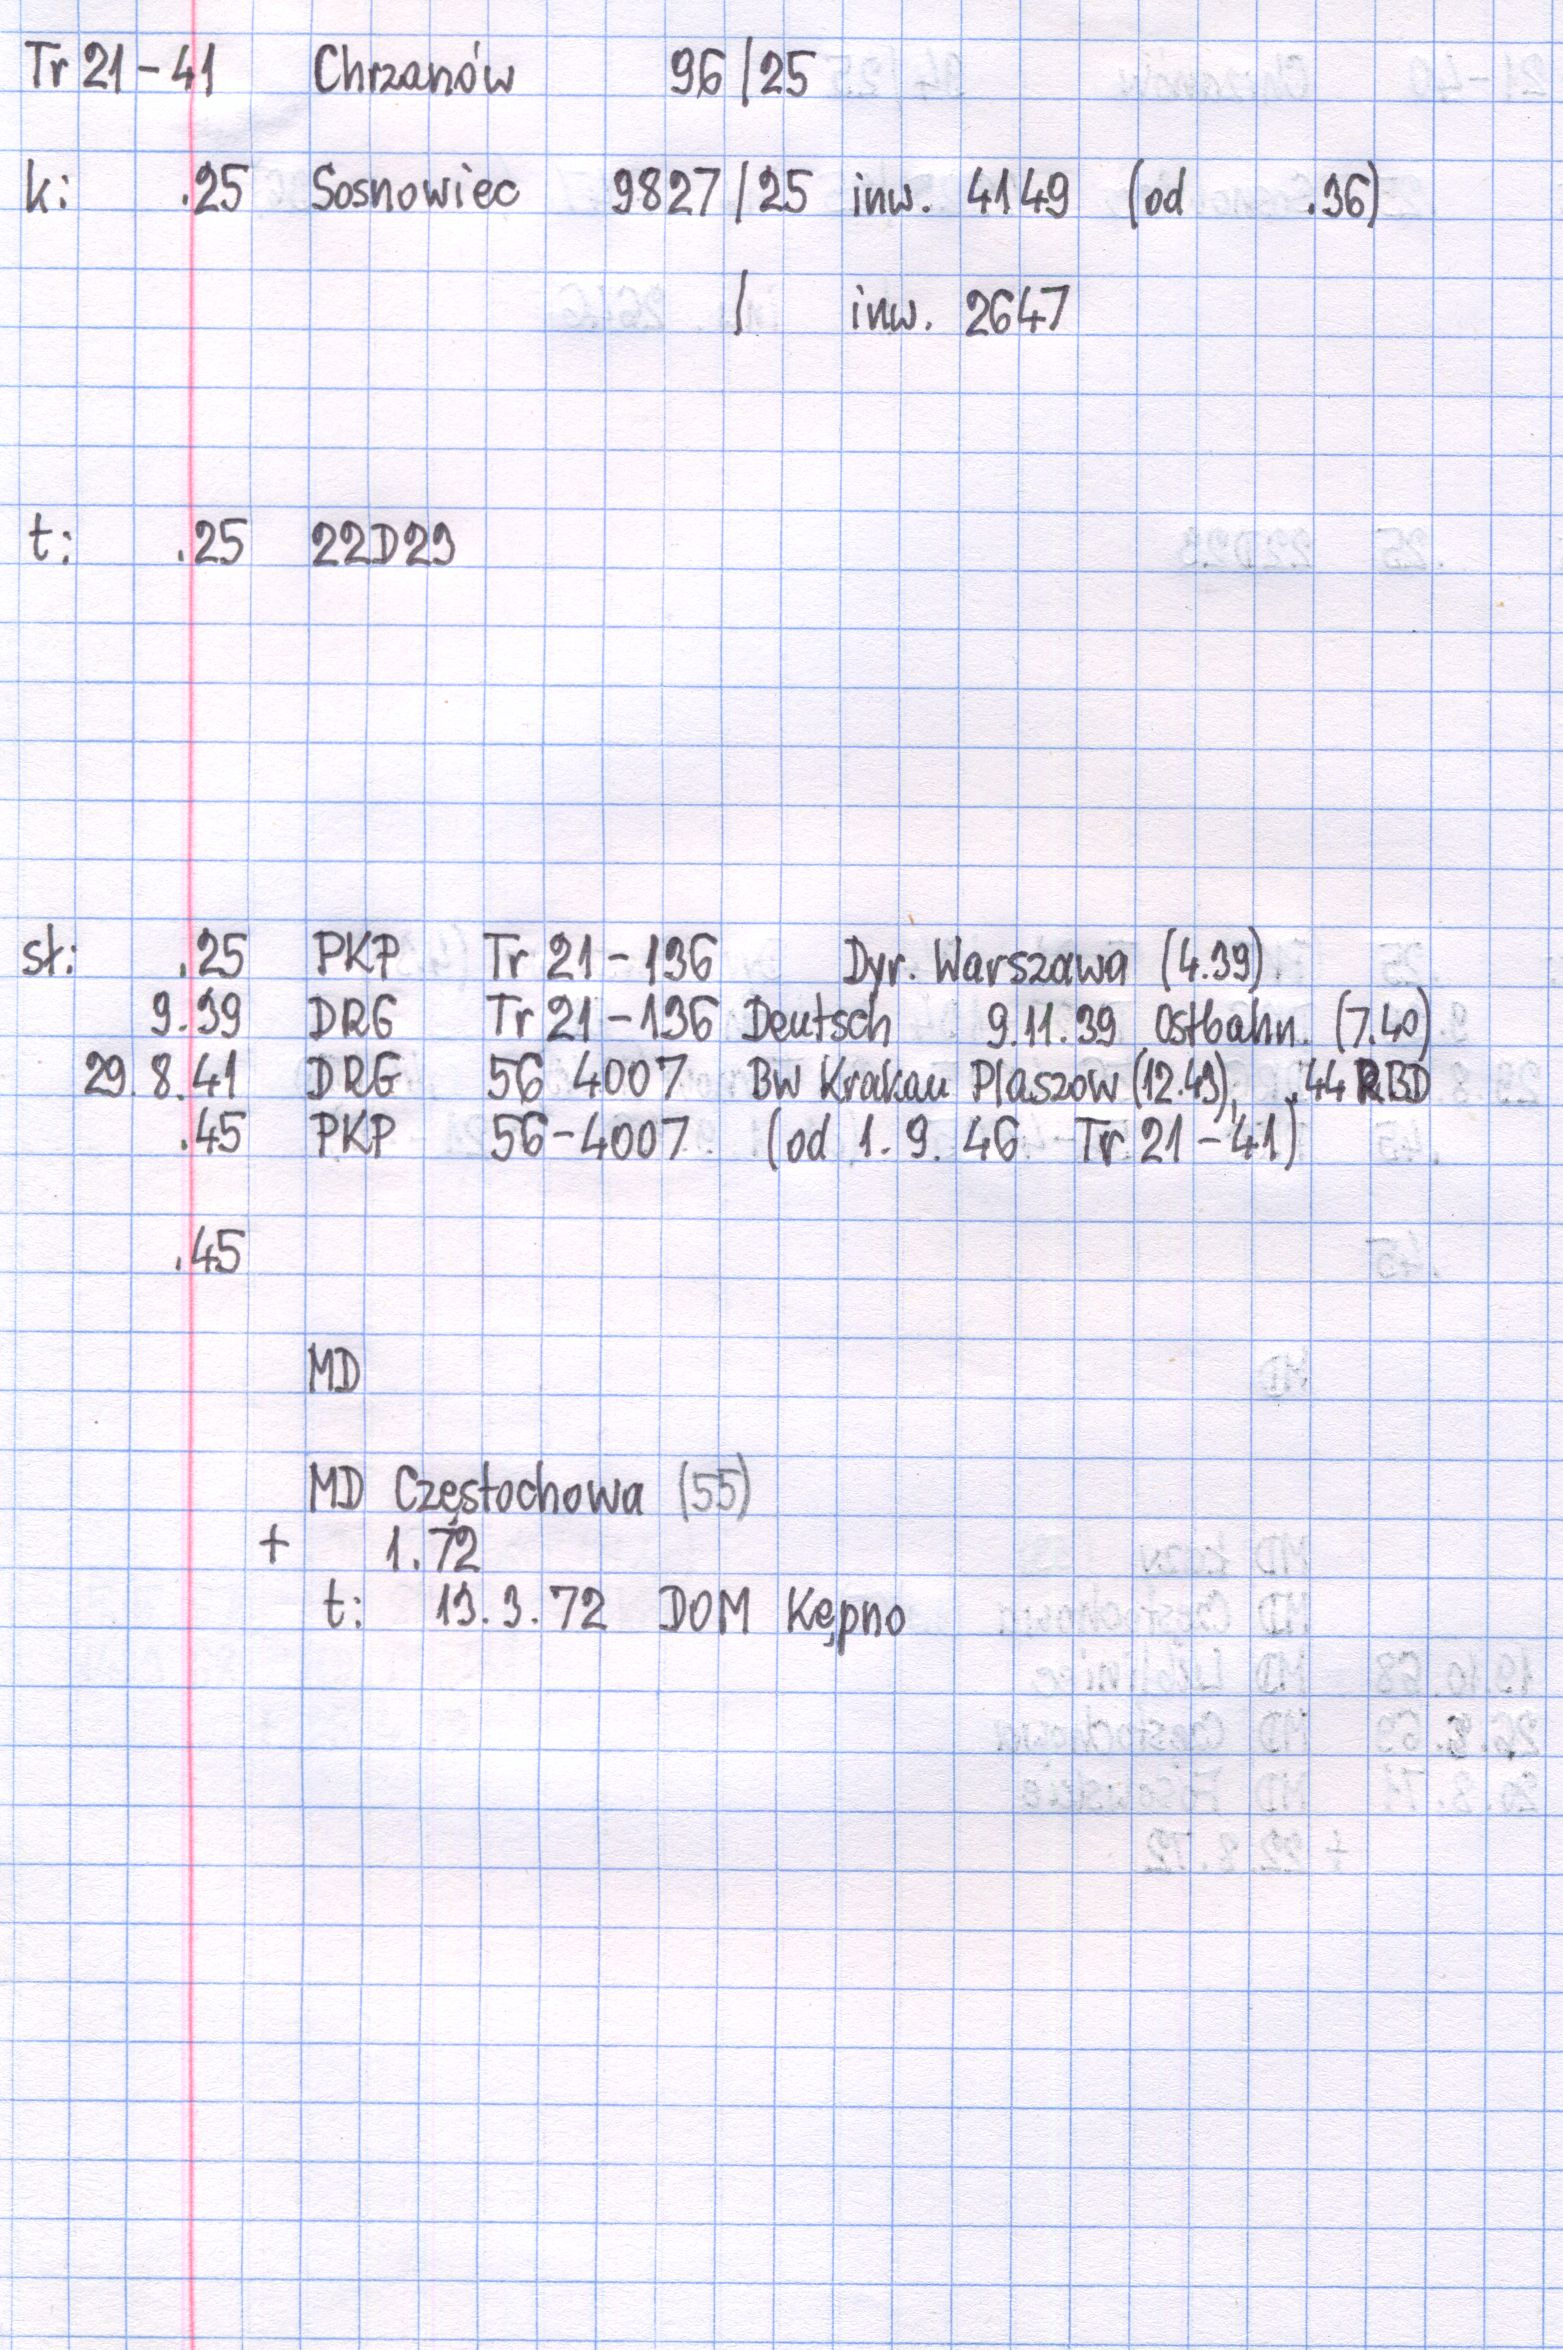 Tr 21-41 Chrzanów 96/25
k: .25 Sosnowiec 9827/25 inw. 4149 (od .36)
/ inw. 2647
t: .25 22D23
st: .25 PKP Tr 21-136 Dyr. Warszawa (4.39)
9.39 DRG Tr 21-136 Deutsch 9.11.39 Ostbahn. (7.40)
29.8.41 DRG 56 4007 BW Krakau Plaszow (12.43), .44 RBD
.45 PKP 56-4007 (od 1.9.46 Tr 21-41)
.45
MD
MD Częstochowa (55)
+ 1.72
t: 13.3.72 DOM Kępno